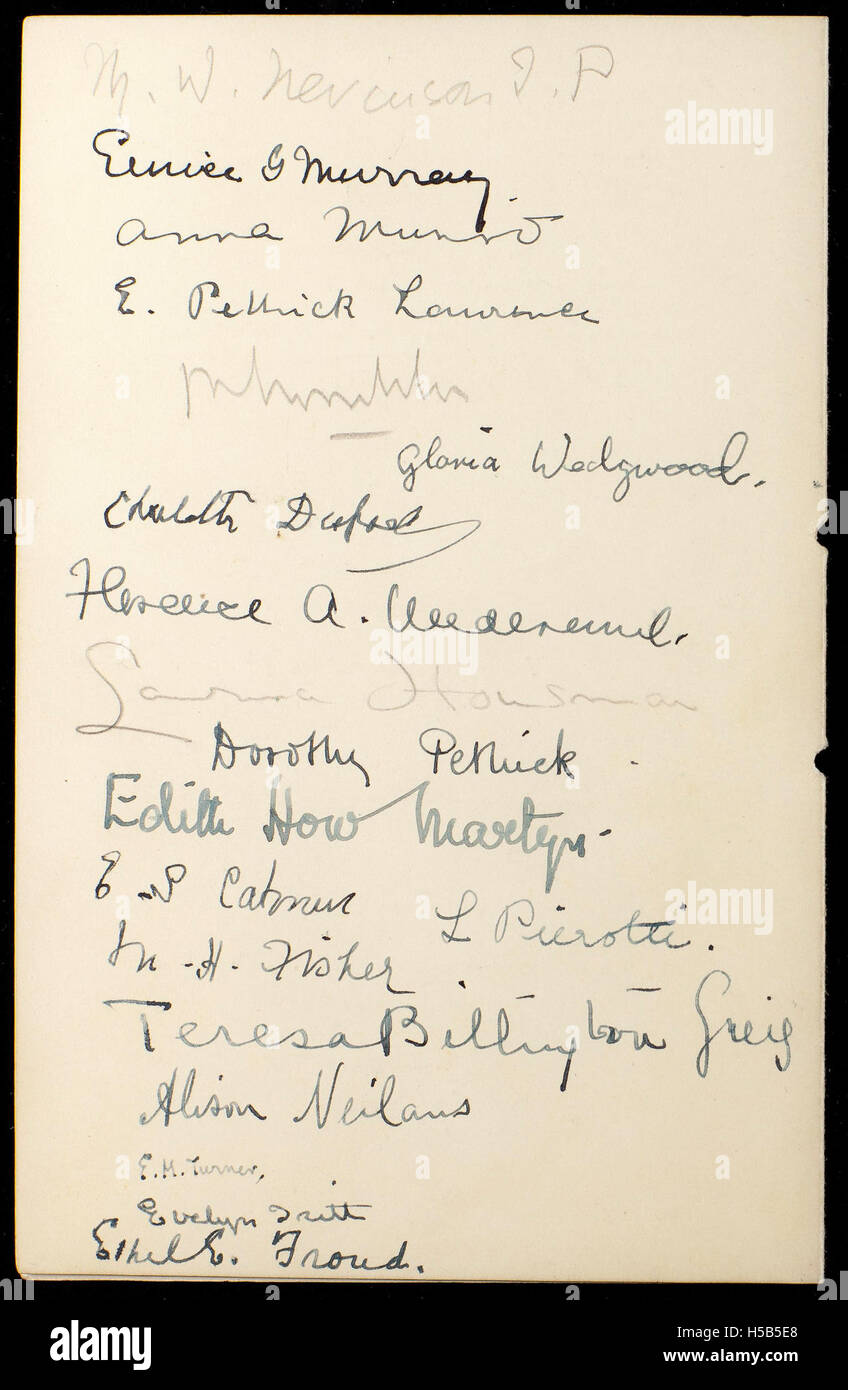 M. W. Nevinson J. P
Eunice G Murray
Anna Munro
E. Pethick Lawrence
Gloria Wedgwood.
Charlotte Despard
Florence A. Underwood.
Laurence Housman
Dorothy Pethick
Edith How Martyn
E S Catmur
L Pierotti.
M. H. Fisher
Teresa Billington Greig
Alison Neilans
E. M. Turner,
Evelyn
Ethel E. Froud.
alamy
alamy
alamy
alamy
alamy
alamy
Image ID: H5B5E8
www.alamy.com
alamy stock photo